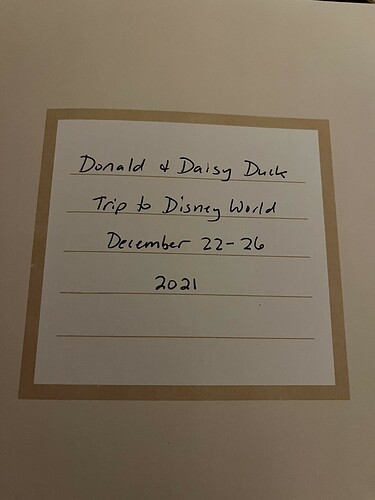 Donald & Daisy Duck
Trip to Disney World
December 22-26
2021